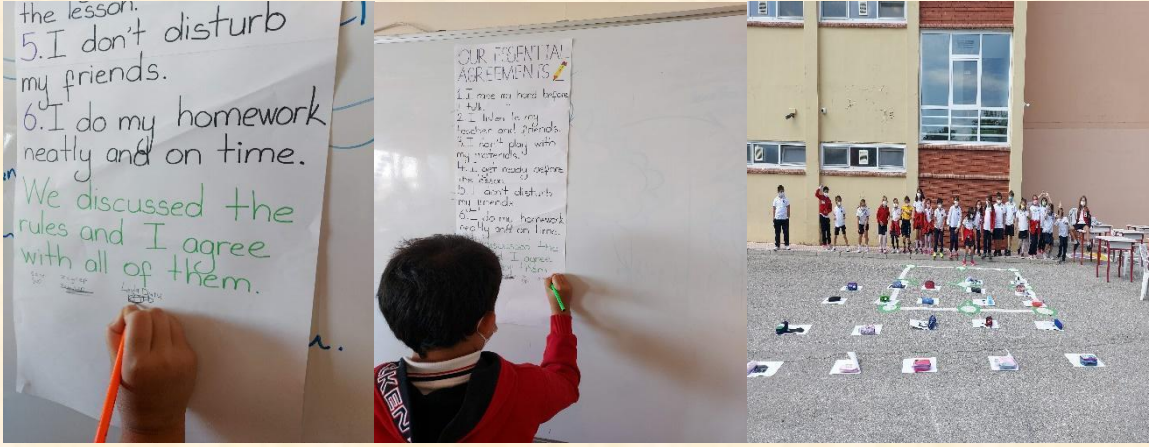 the lesson.
5. I don't disturb
my friends.
6. I do my homework
neatly and on time.
We discussed the
rules and I agree
with all of them.
OUR ESSENTIAL
AGREEMENTS
1. I raise my hand before
I talk.
2. I listen to my
teacher and friends.
3. I don't play with
my materials.
4. I get ready before
the lesson.
5. I don't disturb
my friends.
6. I do my homework
neatly and on time.
discussed the
I agree
them.